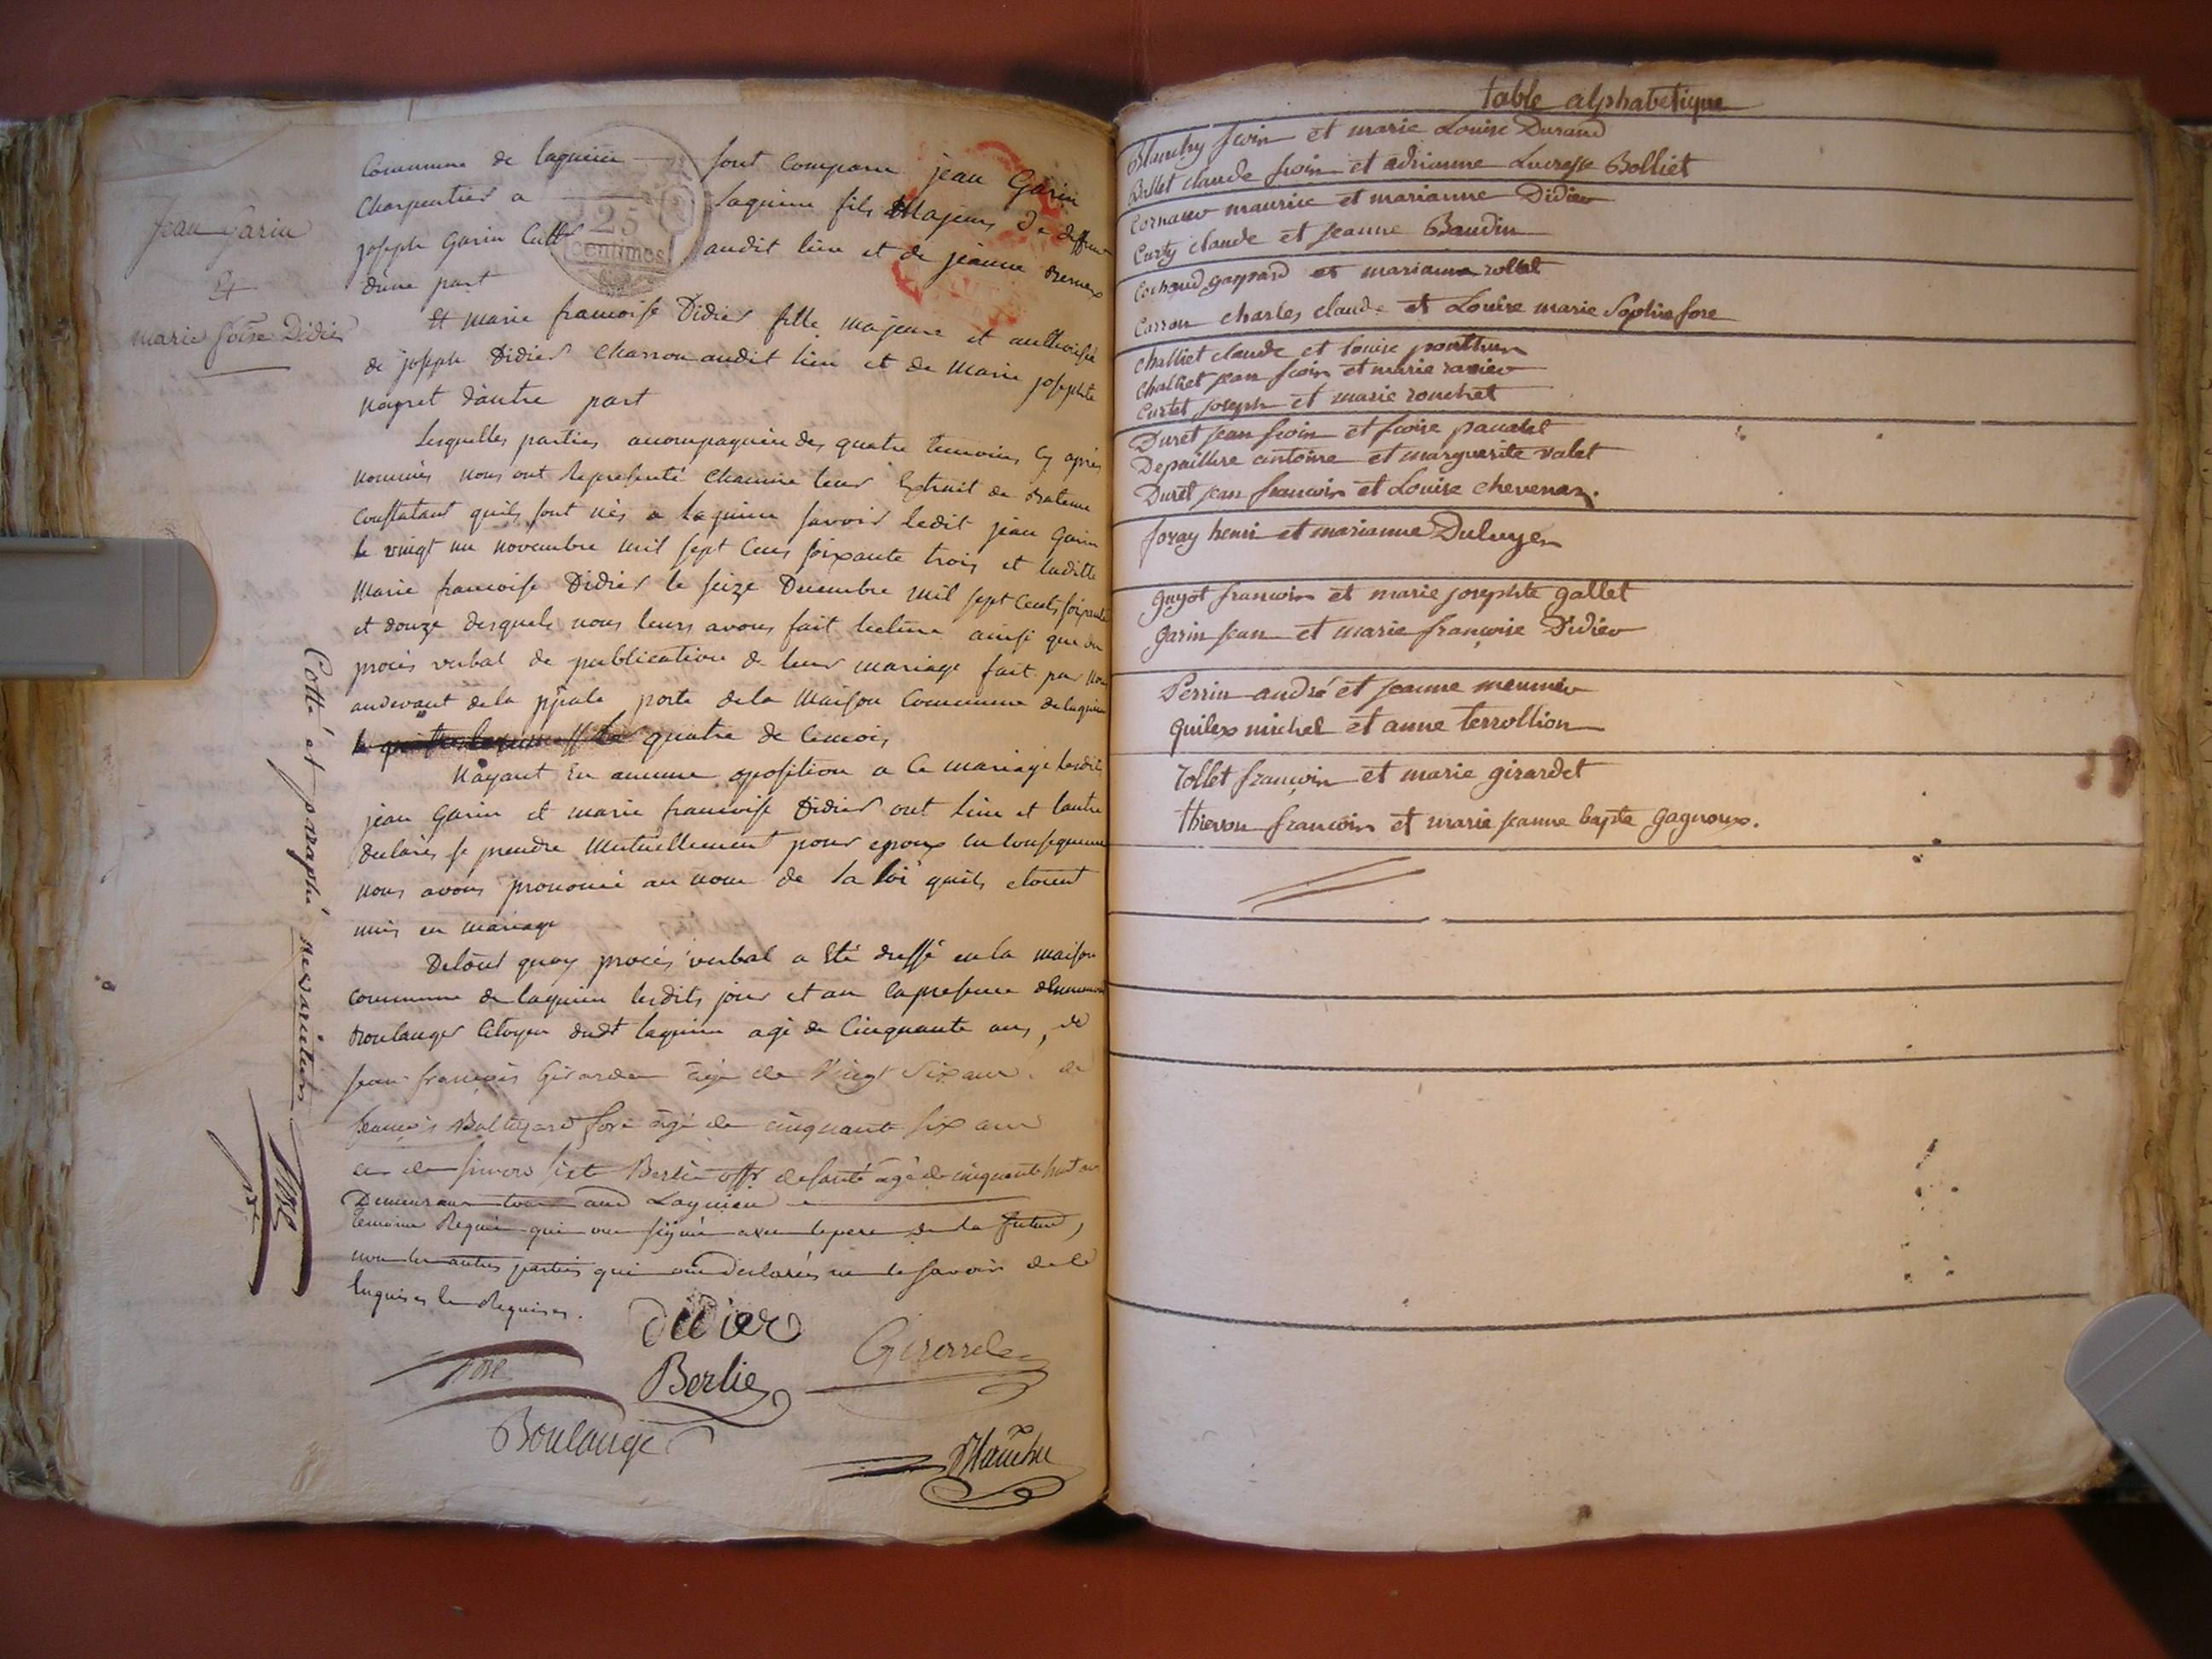 Jean Garin
Et
marie foise Didier
Commune de lagnieu sont Comparu jean Garin
Charpentier a Lagnieu fils Majeur de deffunt
joseph Garin Cultr audit lieu et de jeanne
dune part
Et marie francoise Didier fille majeure et authorisée
de joseph Didier Charron audit lieu et de Marie josephte
nayret dautre part
Lesquelles parties accompagnée des quatre temoins Cy après
nommés nous ont Representé Chacune leur Extrait de
Constatant quils sont nés a lagnieu savoir ledit jean Garin
le vingt un novembre mil sept Cens soixante trois et laditte
Marie francoise Didier le seize Decembre mil sept Cents soixante
et douze desquels nous leurs avons fait lecture ainsi que du
procès verbal de publication de leur mariage fait par nous
audevant de la ppale porte de la Maison Commune de lagnieu
quatre de cemois
Nayant Eu aucune oposition a Ce mariage lesdits
jean Garin et marie francoise Didier ont l'un et lautre
declarés se prendre Mutuellement pour epoux en Consequence
nous avons prononcé au nom de la loi quils etoient
unis en mariage
De tout quoy procès verbal a Eté dressé en la maison
commune de lagnieu lesdits jour et an en presence
Boulanger Citoyen dudt lagnieu agé de Cinquante ans, de
Jean françois Girarde agé de Vingt Six ans. de
françois Baltazard foré agé de cinquante six ans
et de Berlie offr de santé agé de cinquante huit ans
Demeurant tous aud Lagnieu
temoins Requis qui ont signé avec le pere de la future,
non les autres parties qui ont declarés ne le savoir de ce
Enquises et Requises.
Didier
foré
Berlie
Girarde
Boulange
Blanchy
Cotté et paraphé nevarietur
foré
table alphabetique
Blanchy fcois et marie Louise Durand
Ballet claude fcois et adrianne Lucresse Bolliet
Cornand maurice et marianne Didier
Curty claude et Jeanne Baudin
Cochoud gaspard et marianne rollet
Carron charles claude et Louise marie Sophie fore
Challiet claude et louise
Challiet jean fcois et marie ravier
Curtet joseph et marie rouchet
Duret jean fcois et fcoise
Depaillere antoine et marguerite valet
Duret jean francois et Louise chevenas.
foray henri et marianne
guyot francois et marie josephte gallet
garin jean et marie françoise Didier
Perrin andré et jeanne meunier
quilex michel et anne terrollion
rollet françois et marie girardet
thievon francois et marie jeanne bapte gagnoux.